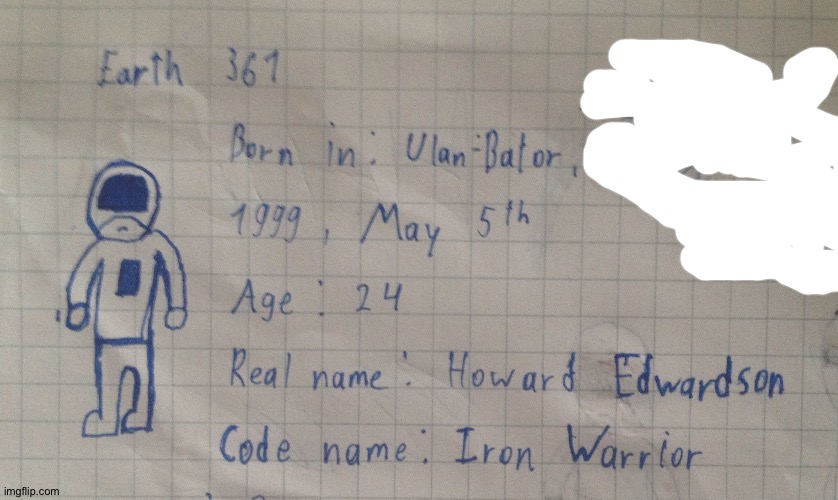 Earth 361
Born in: Ulan-Bator,
1999, May 5th
Age: 24
Real name: Howard Edwardson
Code name: Iron Warrior
imgflip.com